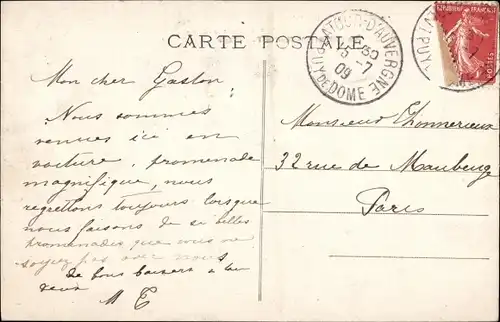 CARTE POSTALE
LA TOUR-D'AUVERGNE
15 30
30 -7
09
PUY DE DOME
Mon cher Gaston,
Nous sommes
venues ici en
voiture, promenade
magnifique, nous
regrettons toujours lorsque
nous faisons de si belles
promenades que vous ne
soyez pas avec nous
de bons baisers à tous
deux
M T
Monsieur Thonnerieux
32 rue de Maubeuge
Paris